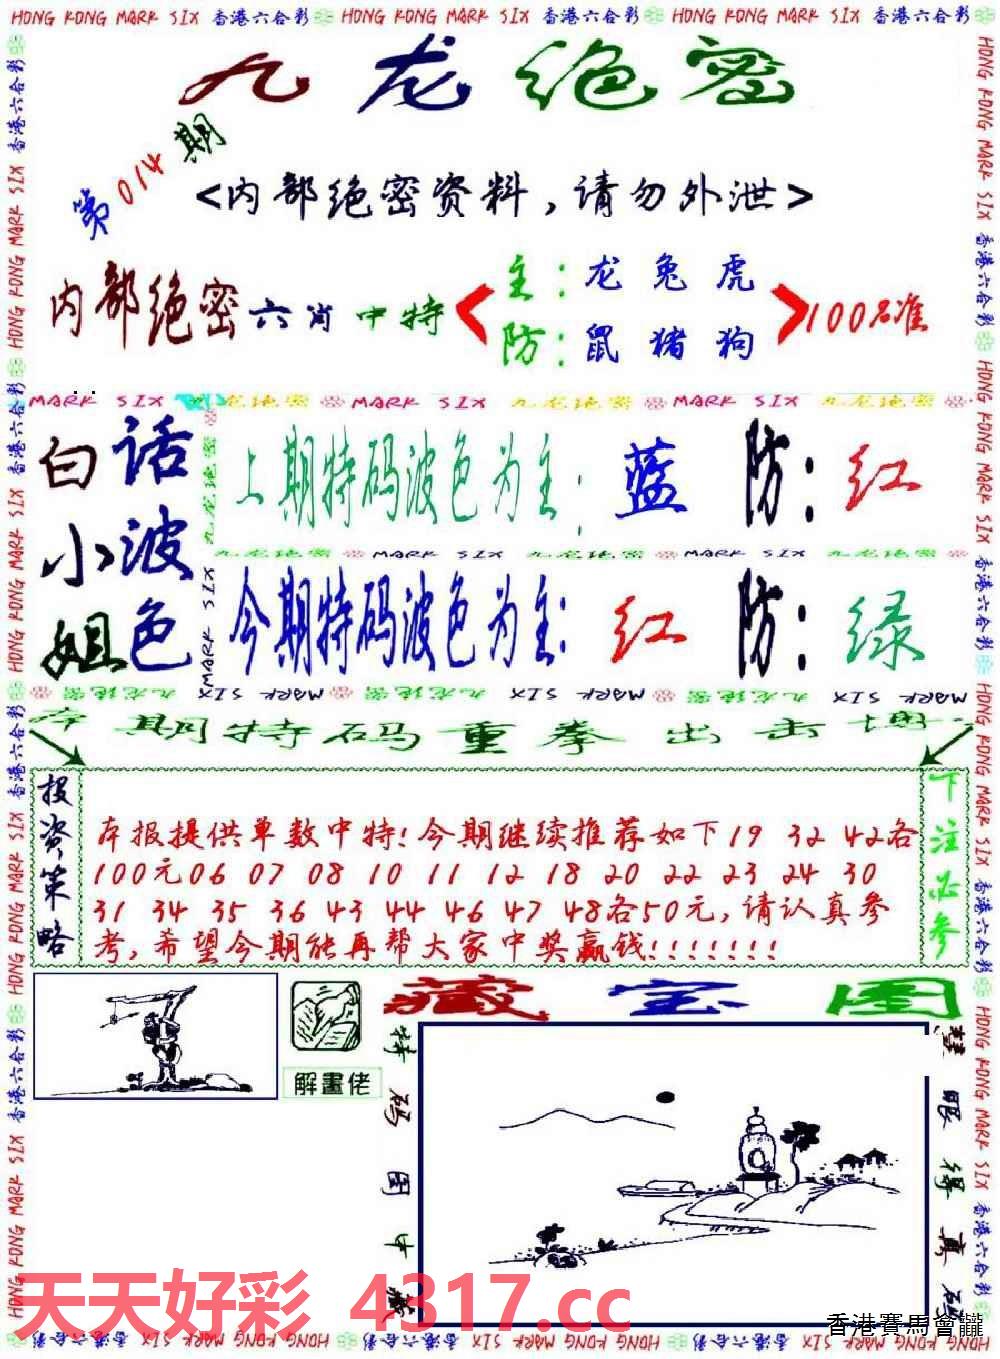 HONG KONG MARK SIX 香港六合彩 HONG KONG MARK SIX 香港六合彩 HONG KONG MARK SIX 香港六合彩
九龙绝密
第014期
<内部绝密资料,请勿外泄>
内部绝密六肖中特
主:龙 兔 虎
防:鼠 猪 狗
100%准
MARK SIX 九龙绝密 MARK SIX 九龙绝密 MARK SIX 九龙绝密
白小姐
话波色
上期特码波色为主:蓝 防:红
九龙绝密 MARK SIX 九龙绝密 MARK SIX 九龙绝密
今期特码波色为主:红 防:绿
本期特码重拳出击
投资策略
本报提供单数中特!今期继续推荐如下19 32 42各
100元06 07 08 10 11 12 18 20 22 23 24 30
31 34 35 36 43 44 46 47 48各50元,请认真参
考,希望今期能再帮大家中奖赢钱!!!!!!!
下注必参
藏宝图
解畫佬
特码图中藏
慧眼得真码
天天好彩 4317.cc
香港賽馬會